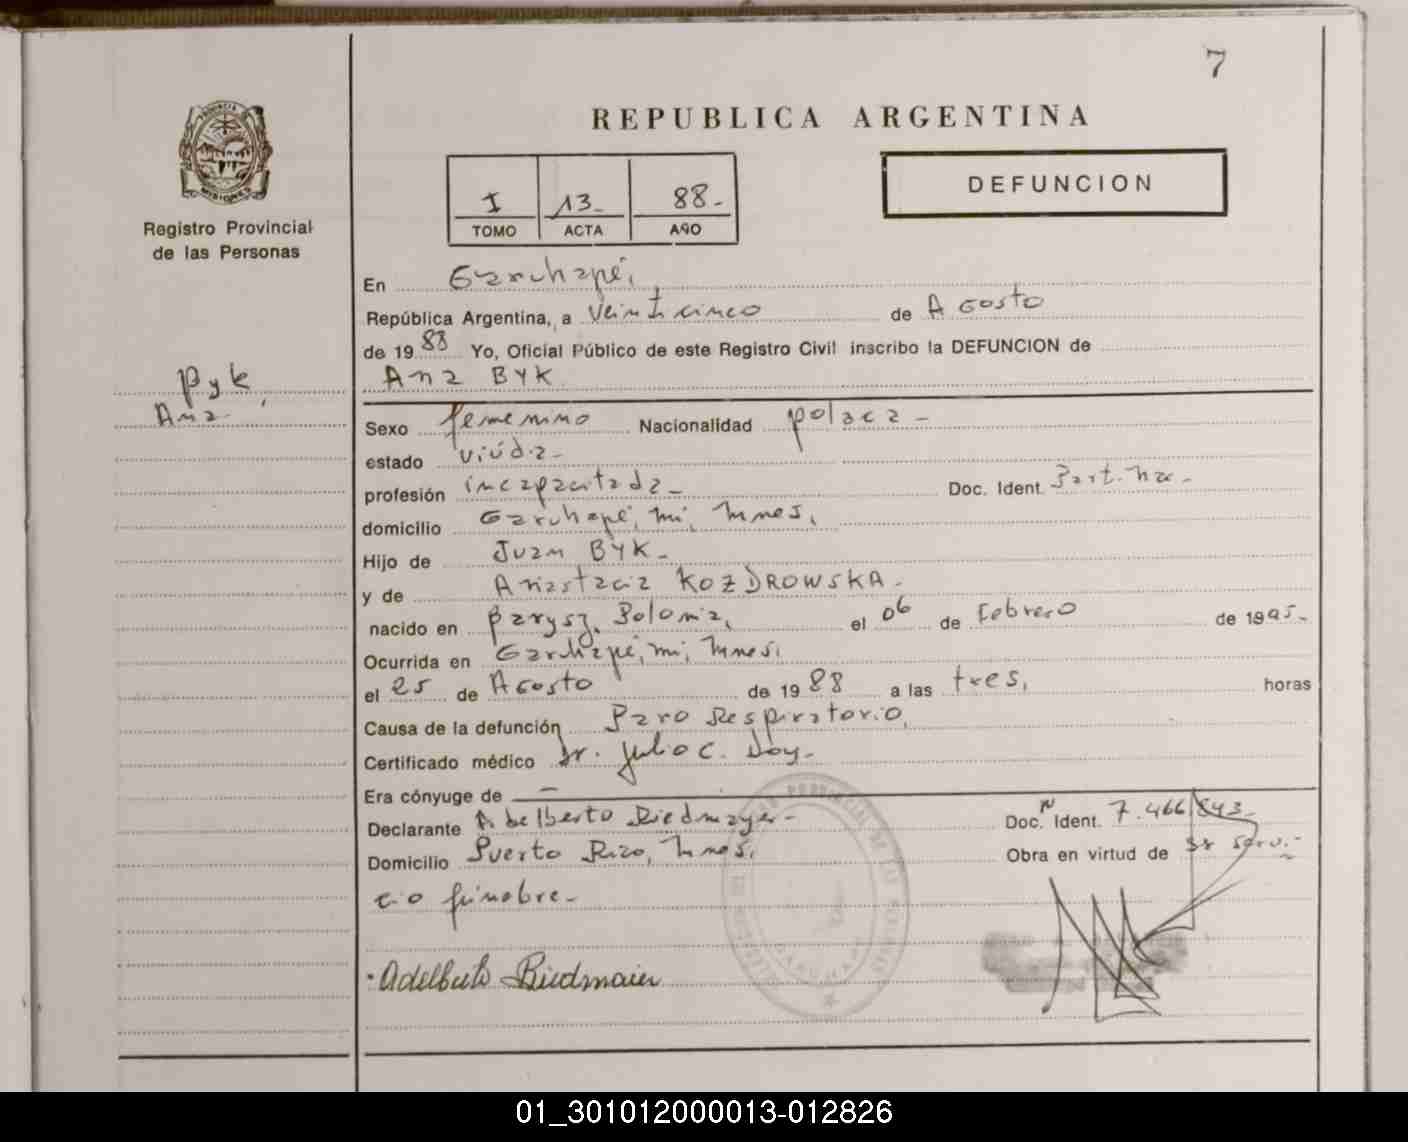 7
REPUBLICA ARGENTINA
DEFUNCION
I 13- 88-
TOMO ACTA AÑO
Registro Provincial
de las Personas
Byk,
Ana
En Garuhapé,
República Argentina, a Veinticinco de Agosto
de 1988 Yo, Oficial Público de este Registro Civil inscribo la DEFUNCION de
Ana BYK
Sexo femenino Nacionalidad polaca-
estado viúda-
profesión incapacitada- Doc. Ident. Part. nac-
domicilio Garuhapé, mi, Mnes,
Hijo de Juan BYK-
y de Anastacia KOZDROWSKA-
nacido en Barysz, Polonia, el 06 de Febrero de 1995-
Ocurrida en Garuhapé, mi, Mnes,
el 25 de Agosto de 1988 a las tres, horas
Causa de la defunción Paro Respiratorio,
Certificado médico Dr. Julio C. Doy-
Era cónyuge de —
Declarante Adelberto Riedmayer- Doc. Ident. Nº 7.466.843-
Domicilio Puerto Rico, Mnes, Obra en virtud de sr servi-
cio fúnebre-
Adelberto Riedmaier
01_301012000013-012826